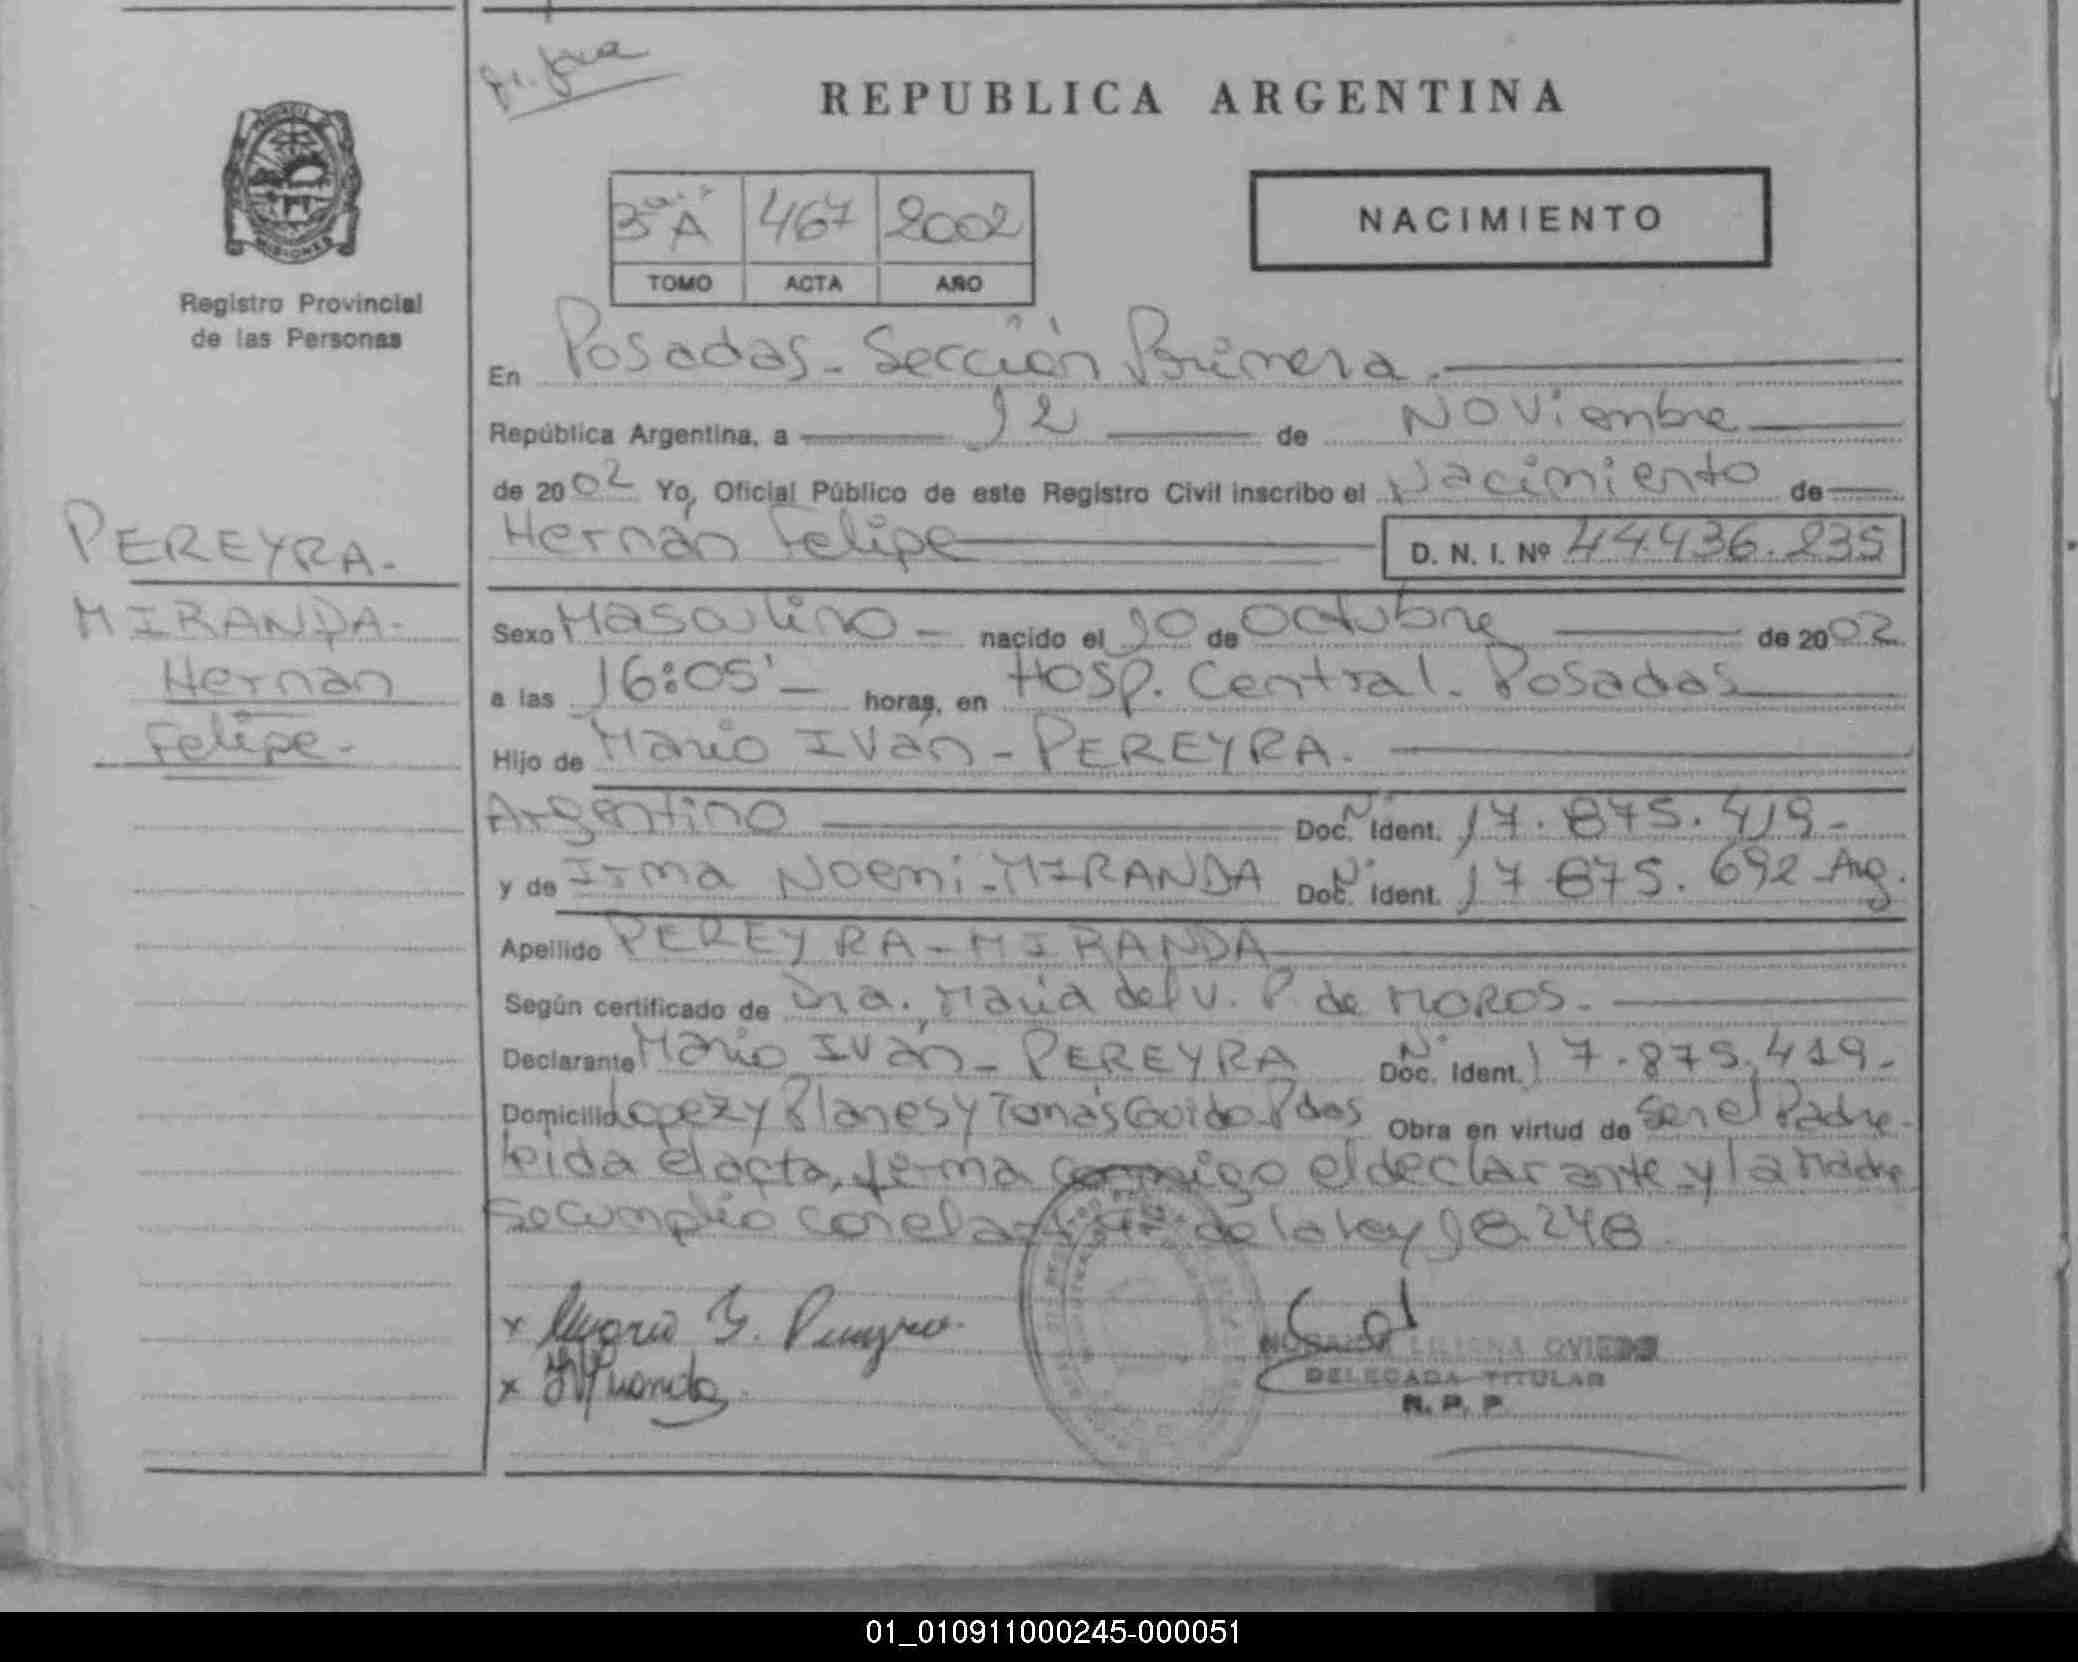 REPUBLICA ARGENTINA
MISIONES
Registro Provincial
de las Personas
3º A 467 2002
TOMO ACTA AÑO
NACIMIENTO
En Posadas - Sección Primera.
República Argentina, a 12 de Noviembre
de 2002 Yo, Oficial Público de este Registro Civil inscribo el Nacimiento de
Hernán Felipe D. N. I. Nº 44.436.235
PEREYRA-
MIRANDA-
Hernan
Felipe-
Sexo Masculino - nacido el 10 de Octubre de 2002
a las 16:05' - horas, en Hosp. Central. Posadas
Hijo de Mario Iván - PEREYRA.
Argentino Doc. Nº Ident. 17.875.419-
y de Irma Noemi - MIRANDA Doc. Nº Ident. 17 875. 692 Arg.
Apellido PEREYRA - MIRANDA
Según certificado de Dra. María del V. P. de MOROS.
Declarante Mario Iván - PEREYRA Doc. Nº Ident. 17.875.419-
Domicilio Lopez y Planes y Tomás Guido - Pdas Obra en virtud de Ser el Padre-
leida el acta, firma conmigo el declarante y la Madre
Se cumplio con el de la ley 18.248
x Mario I. Pereyra.
x Miranda
LILIANA OVIEDO
DELEGADA TITULAR
R. P. P.
01_010911000245-000051